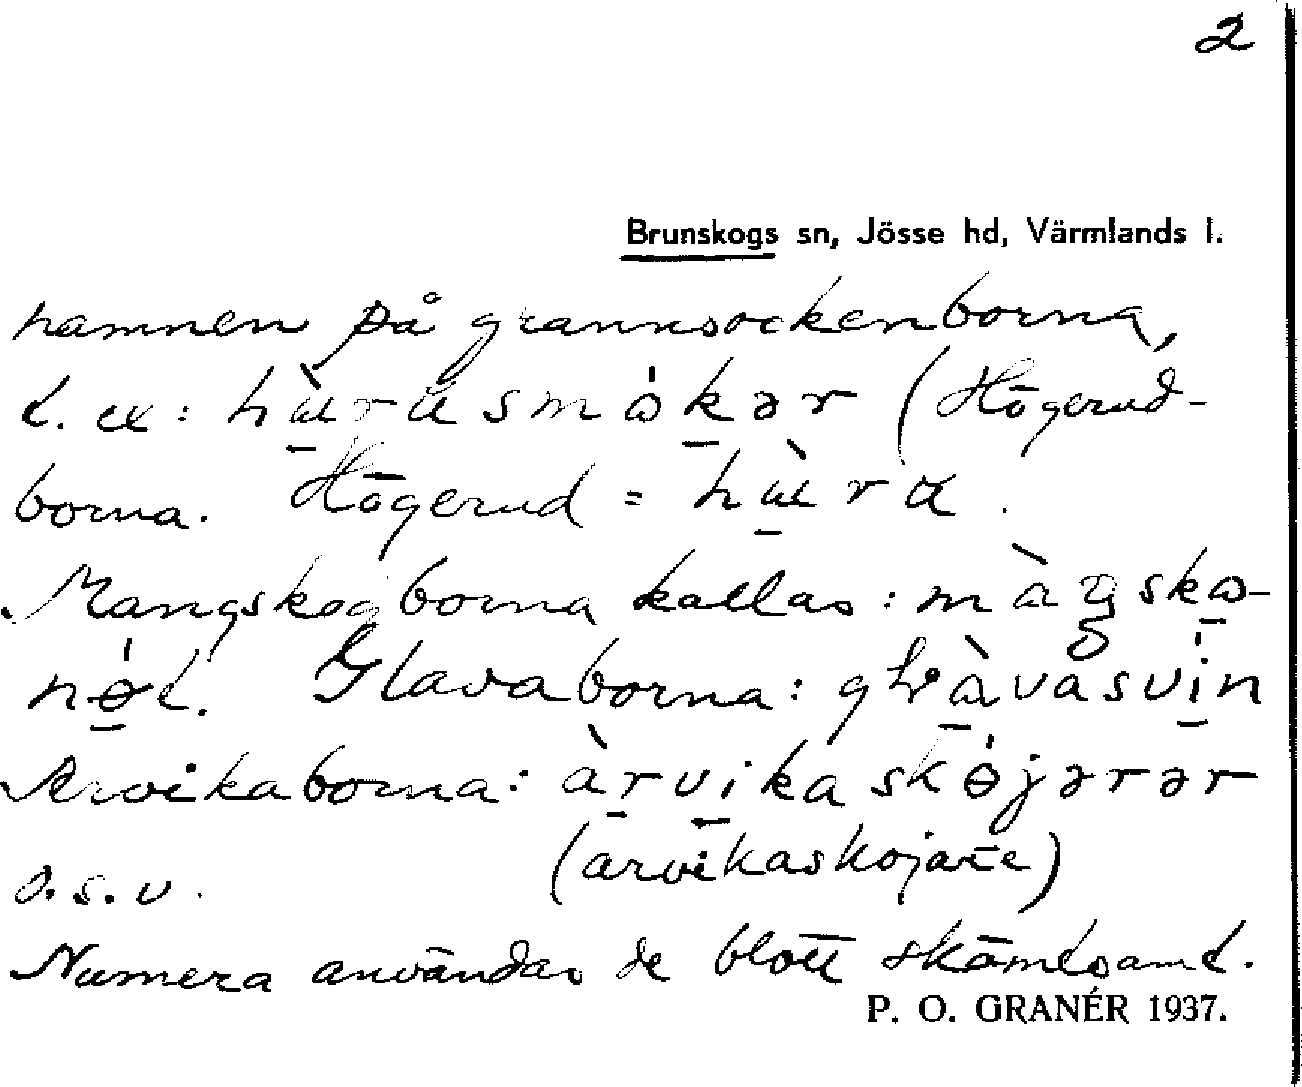 2
Brunskogs sn, Jösse hd, Värmlands l.
namnen på grannsockenborna,
t. ex: hɯ̀rɑsmɷ́kər (Högerud-
borna. Högerud = hɯ̀rɑ.
Mangskogborna kallas: màŋskɷ-
nǿt. Glavaborna: gɫàvasvín
Arvikaborna: àrvikaskǿjərər
o.s.v. (arvikaskojare)
Numera användas de blott skämtsamt.
P. O. GRANÉR 1937.